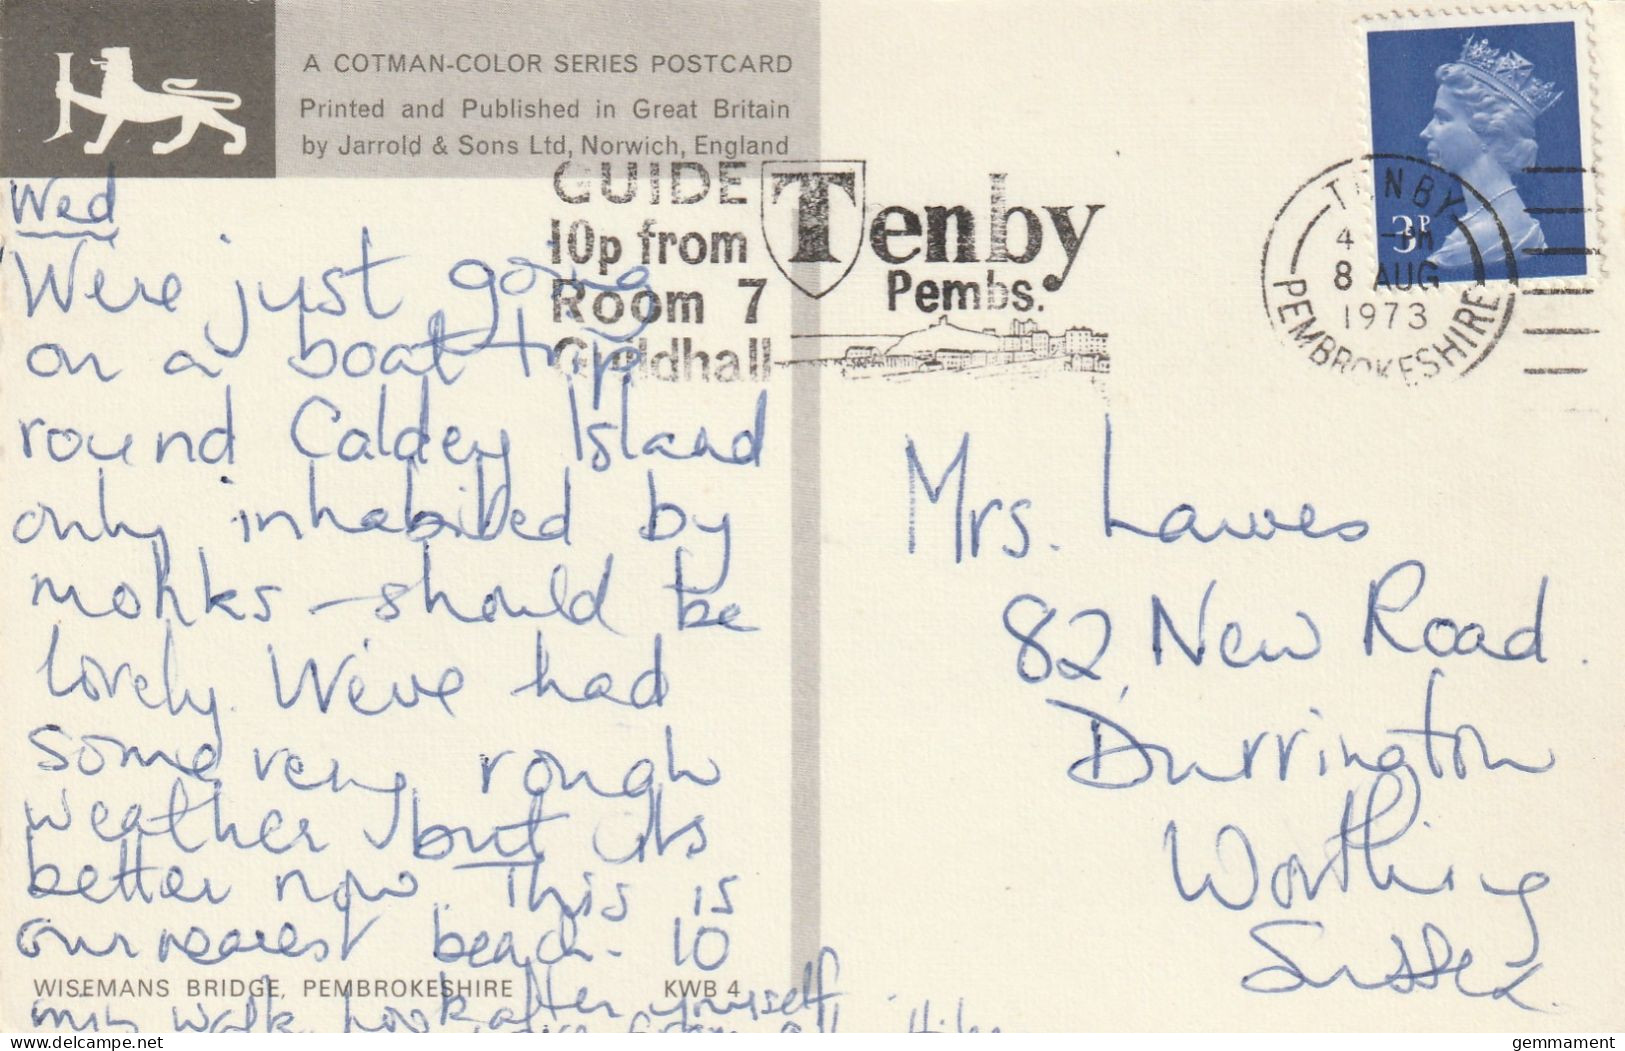 A COTMAN-COLOR SERIES POSTCARD
Printed and Published in Great Britain
by Jarrold & Sons Ltd, Norwich, England
GUIDE
10p from
Room 7
Guildhall
Tenby
Pembs.
3P
TENBY
4 -PM
8 AUG
1973
PEMBROKESHIRE
Wed
We're just going
on a boat trip
round Caldey Island
only inhabited by
monks - should be
lovely. We've had
some very rough
weather but its
better now. This is
our nearest beach - 10
mins walk. Look after yourself
from all
Mrs. Lawes
82, New Road.
Durrington
Worthing
Sussex.
WISEMANS BRIDGE, PEMBROKESHIRE
KWB 4
gemmament